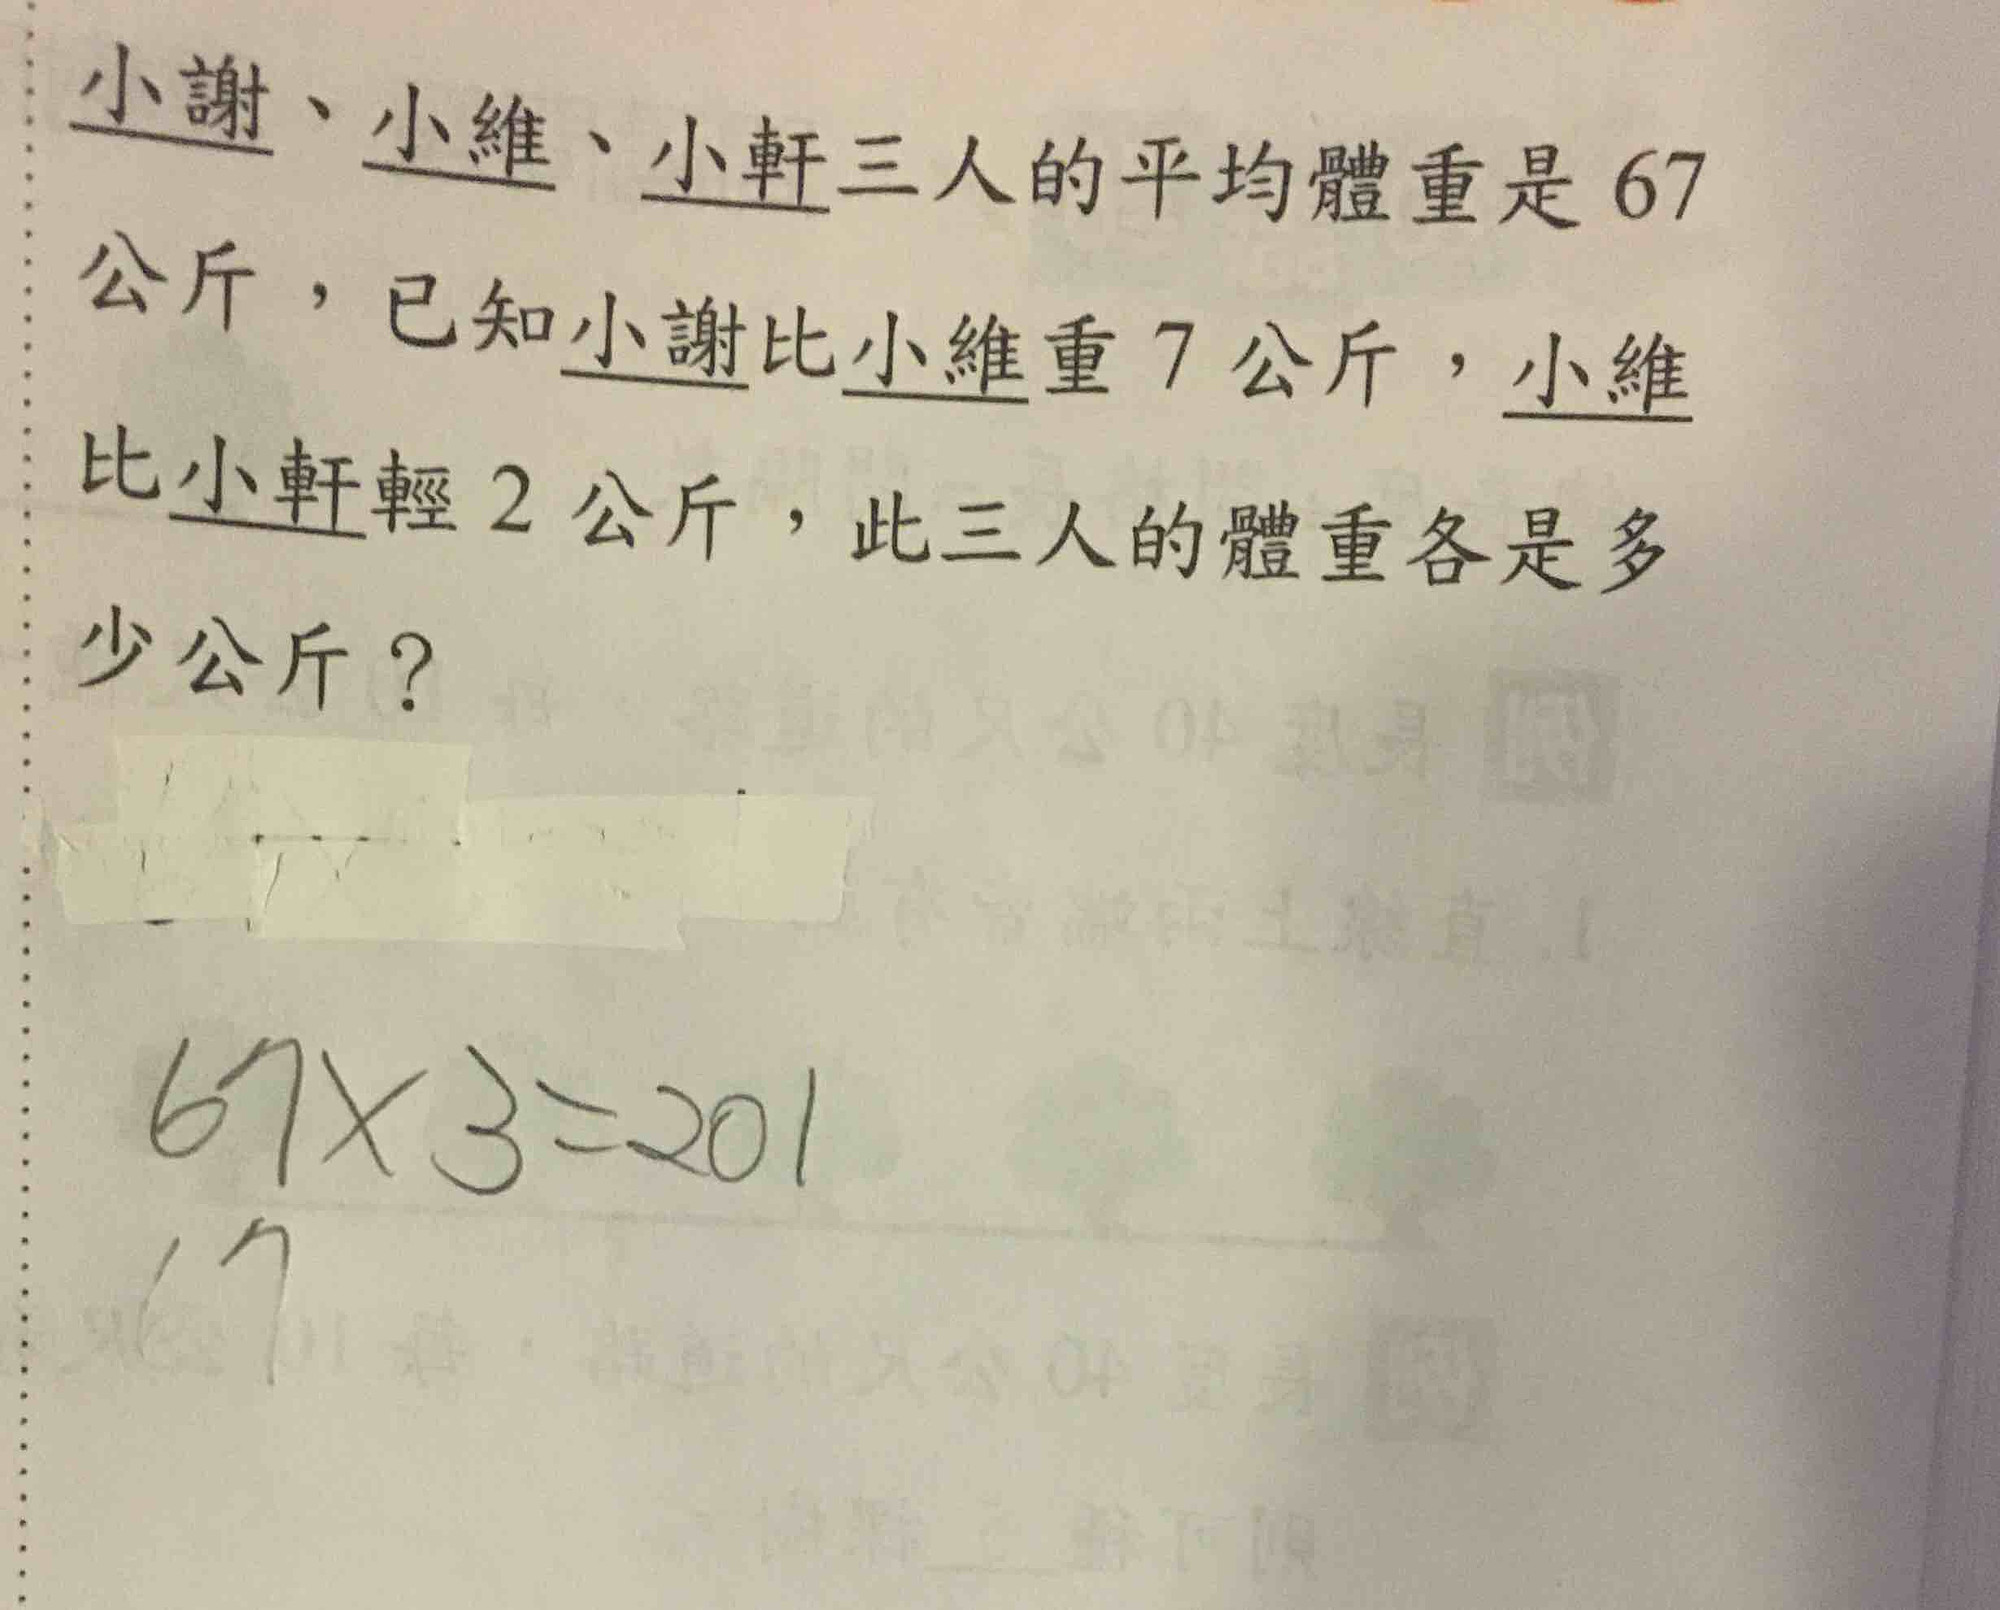 小謝、小維、小軒三人的平均體重是 67
公斤，已知小謝比小維重 7 公斤，小維
比小軒輕 2 公斤，此三人的體重各是多
少公斤？
67×3=201
17